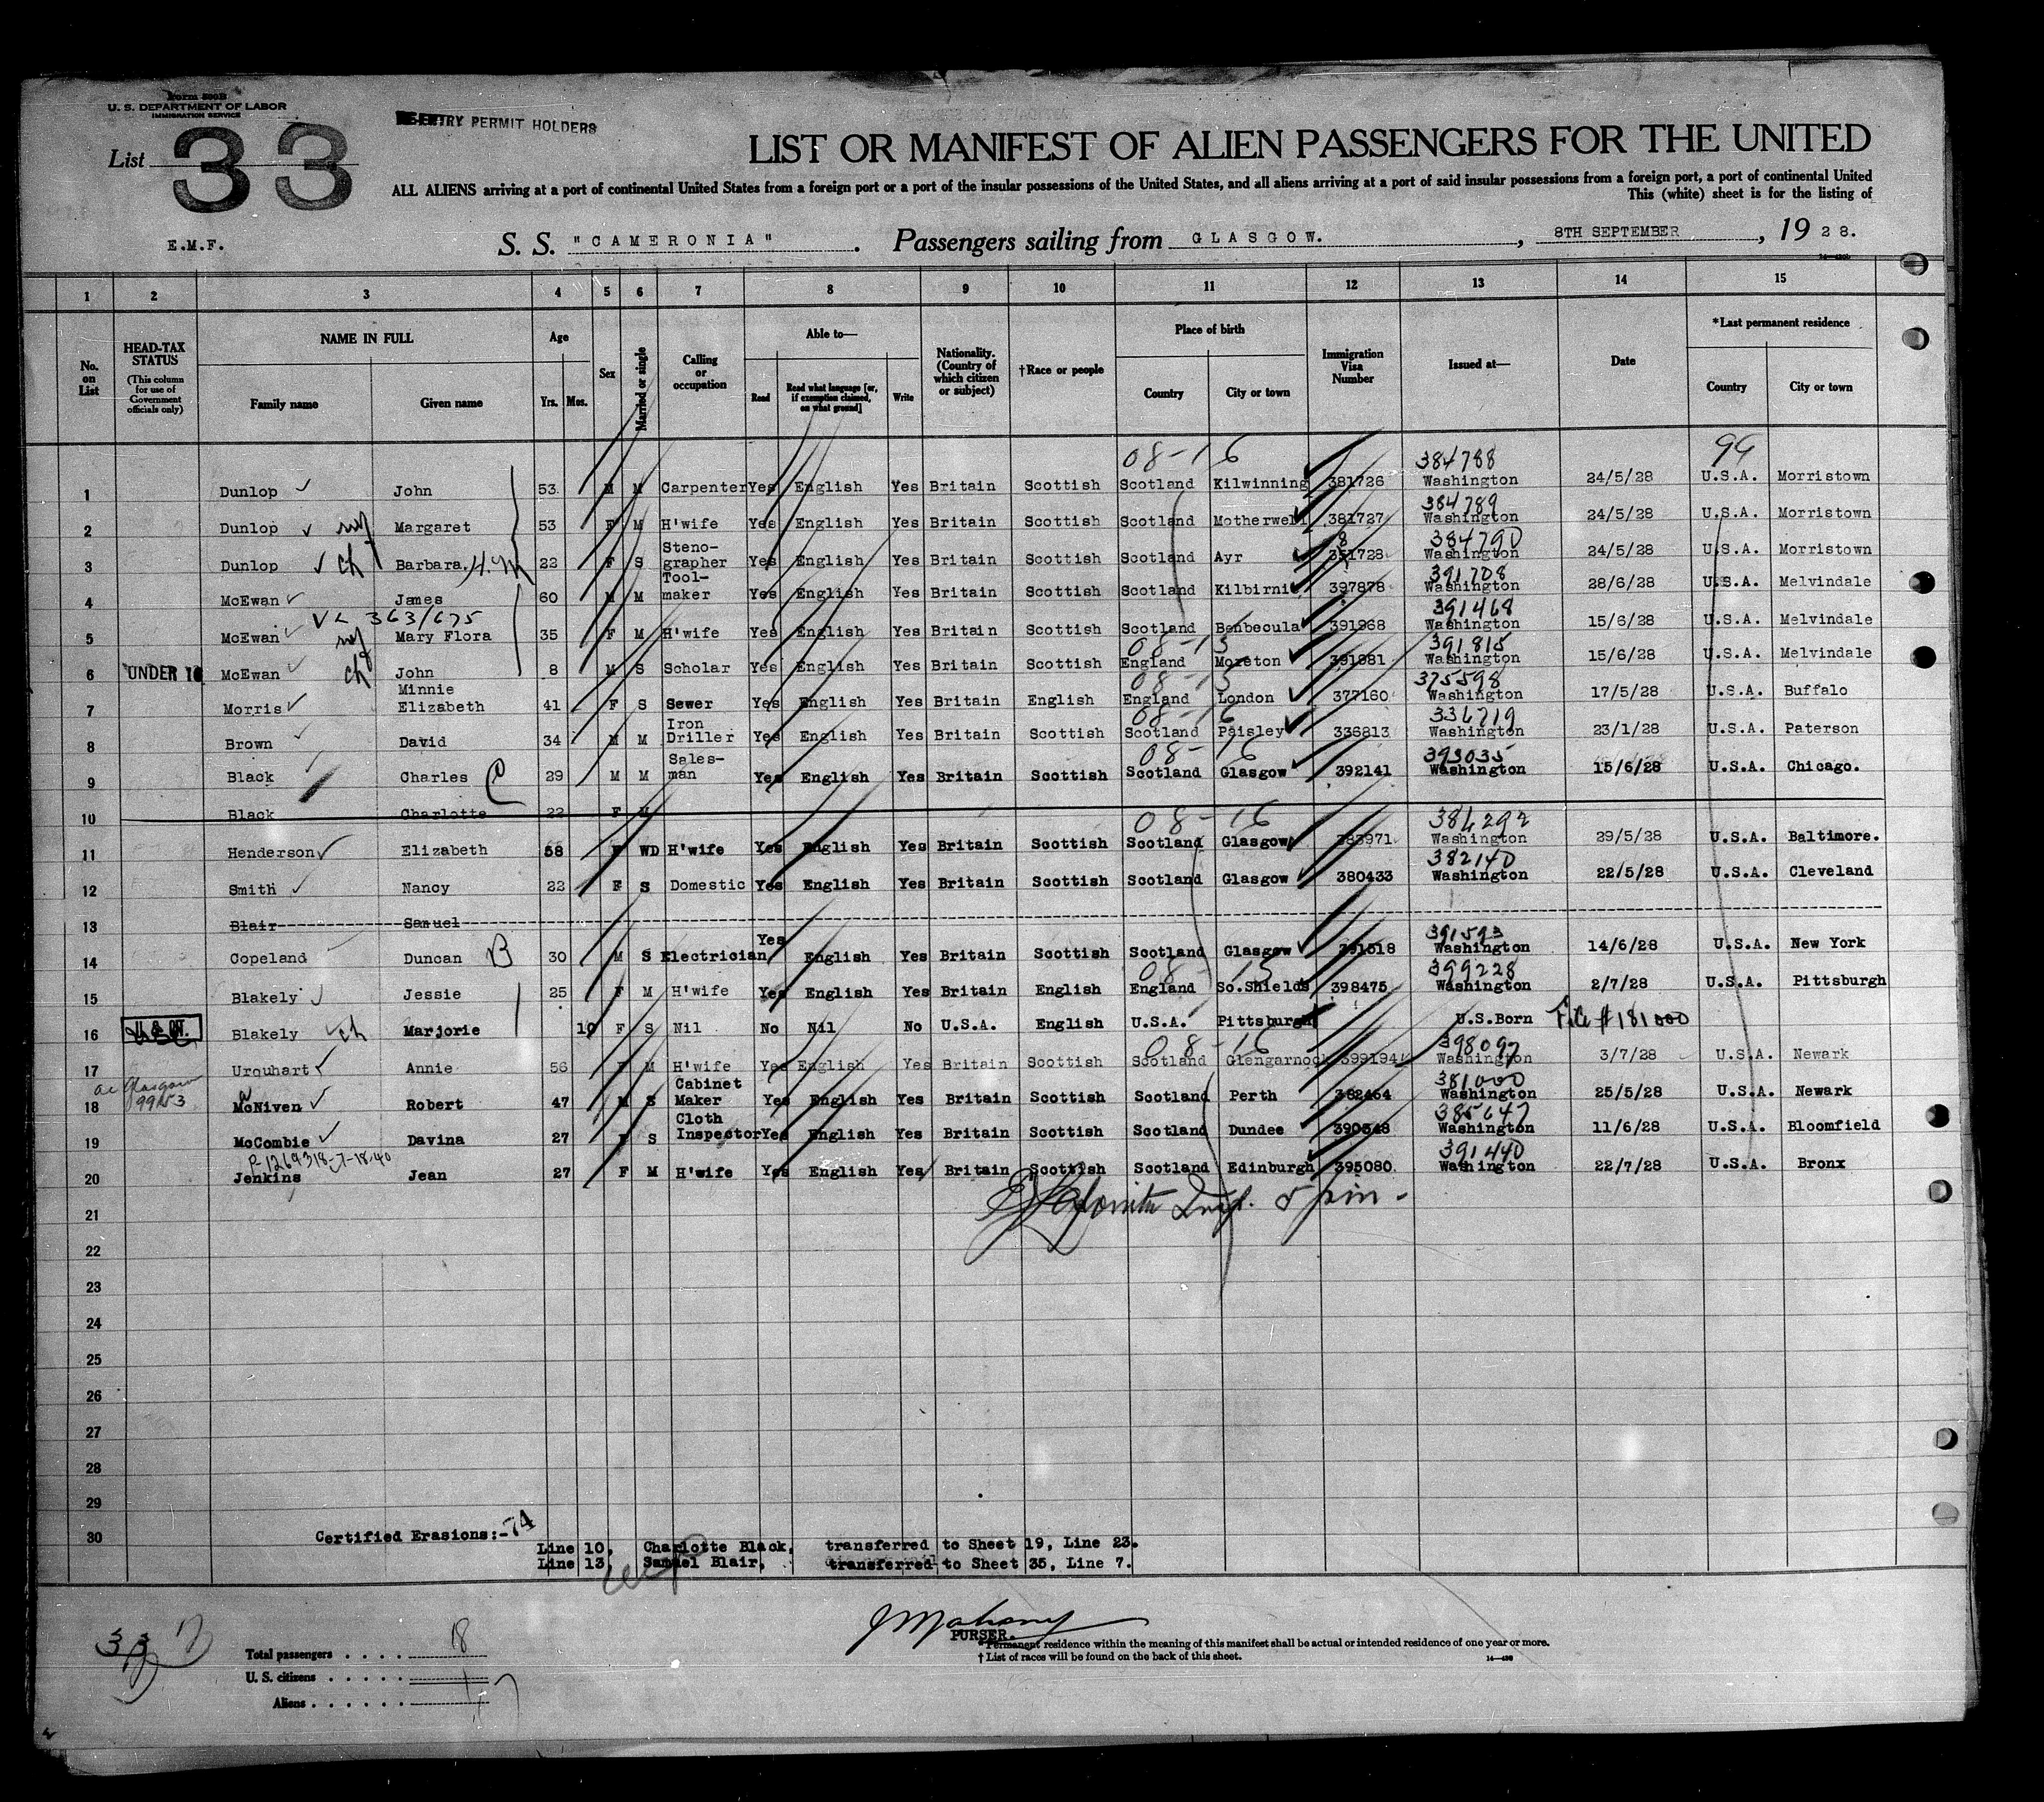 Form 500B
U. S. DEPARTMENT OF LABOR
IMMIGRATION SERVICE
RE-ENTRY PERMIT HOLDERS
List 33
LIST OR MANIFEST OF ALIEN PASSENGERS FOR THE UNITED
ALL ALIENS arriving at a port of continental United States from a foreign port or a port of the insular possessions of the United States, and all aliens arriving at a port of said insular possessions from a foreign port, a port of continental United
This (white) sheet is for the listing of
E.M.F.
S. S. "CAMERONIA". Passengers sailing from GLASGOW., 8TH SEPTEMBER, 1928.
1 2 3 4 5 6 7 8 9 10 11 12 13 14 15
No. on List
HEAD-TAX STATUS (This column for use of Government officials only)
NAME IN FULL
Family name Given name
Age
Yrs. Mos.
Sex
Married or single
Calling or occupation
Able to—
Read Read what language [or, if exemption claimed, on what ground] Write
Nationality. (Country of which citizen or subject)
†Race or people
Place of birth
Country City or town
Immigration Visa Number
Issued at—
Date
*Last permanent residence
Country City or town
08-16 384788 99
1 Dunlop John 53 M M Carpenter Yes English Yes Britain Scottish Scotland Kilwinning 381726 Washington 24/5/28 U.S.A. Morristown
384789
2 Dunlop wf Margaret 53 F M H'wife Yes English Yes Britain Scottish Scotland Motherwell 381727 Washington 24/5/28 U.S.A. Morristown
384790
3 Dunlop ch Barbara. H.M 22 F S Steno-grapher Yes English Yes Britain Scottish Scotland Ayr 381728 Washington 24/5/28 U.S.A. Morristown
391708
4 McEwan James 60 M M Tool-maker Yes English Yes Britain Scottish Scotland Kilbirnie 397878 Washington 28/6/28 U.S.A. Melvindale
VL 363/675 391468
5 McEwan wf Mary Flora 35 F M H'wife Yes English Yes Britain Scottish Scotland Benbecula 391968 Washington 15/6/28 U.S.A. Melvindale
08-13 391815
6 UNDER 16 McEwan ch John 8 M S Scholar Yes English Yes Britain Scottish England Moreton 391981 Washington 15/6/28 U.S.A. Melvindale
08-13 375598
7 Morris Minnie Elizabeth 41 F S Sewer Yes English Yes Britain English England London 377160 Washington 17/5/28 U.S.A. Buffalo
08-16 336719
8 Brown David 34 M M Iron Driller Yes English Yes Britain Scottish Scotland Paisley 336813 Washington 23/1/28 U.S.A. Paterson
08-16 393035
9 Black Charles C 29 M M Sales-man Yes English Yes Britain Scottish Scotland Glasgow 392141 Washington 15/6/28 U.S.A. Chicago.
10 Black Charlotte 22 F M
08-16 384292
11 Henderson Elizabeth 58 F WD H'wife Yes English Yes Britain Scottish Scotland Glasgow 383971 Washington 29/5/28 U.S.A. Baltimore.
382140
12 Smith Nancy 22 F S Domestic Yes English Yes Britain Scottish Scotland Glasgow 380433 Washington 22/5/28 U.S.A. Cleveland
13 Blair Samuel
391593
14 Copeland Duncan B 30 M S Electrician Yes English Yes Britain Scottish Scotland Glasgow 391518 Washington 14/6/28 U.S.A. New York
08-13 399228
15 Blakely Jessie 25 F M H'wife Yes English Yes Britain English England So.Shields 398475 Washington 2/7/28 U.S.A. Pittsburgh
16 Blakely ch Marjorie 10 F S Nil No Nil No U.S.A. English U.S.A. Pittsburgh U.S.Born #181000
08-16 398097
17 Urquhart Annie 56 F M H'wife Yes English Yes Britain Scottish Scotland Glengarnock 399194 Washington 3/7/28 U.S.A. Newark
Glasgow 381000
18 9953 McNiven Robert 47 M S Cabinet Maker Yes English Yes Britain Scottish Scotland Perth 382464 Washington 25/5/28 U.S.A. Newark
385647
19 McCombie Davina 27 F S Cloth Inspector Yes English Yes Britain Scottish Scotland Dundee 390348 Washington 11/6/28 U.S.A. Bloomfield
P-1269318-7-18-40 391440
20 Jenkins Jean 27 F M H'wife Yes English Yes Britain Scottish Scotland Edinburgh 395080 Washington 22/7/28 U.S.A. Bronx
21
22
23
24
25
26
27
28
29
30
Certified Erasions:- 74
Line 10, Charlotte Black, transferred to Sheet 19, Line 23.
Line 13, Samuel Blair, transferred to Sheet 35, Line 7.
J Mahony
PURSER.
* Permanent residence within the meaning of this manifest shall be actual or intended residence of one year or more.
† List of races will be found on the back of this sheet.
Total passengers . . . . 18
U. S. citizens . . . . . . 1
Aliens . . . . . . 17